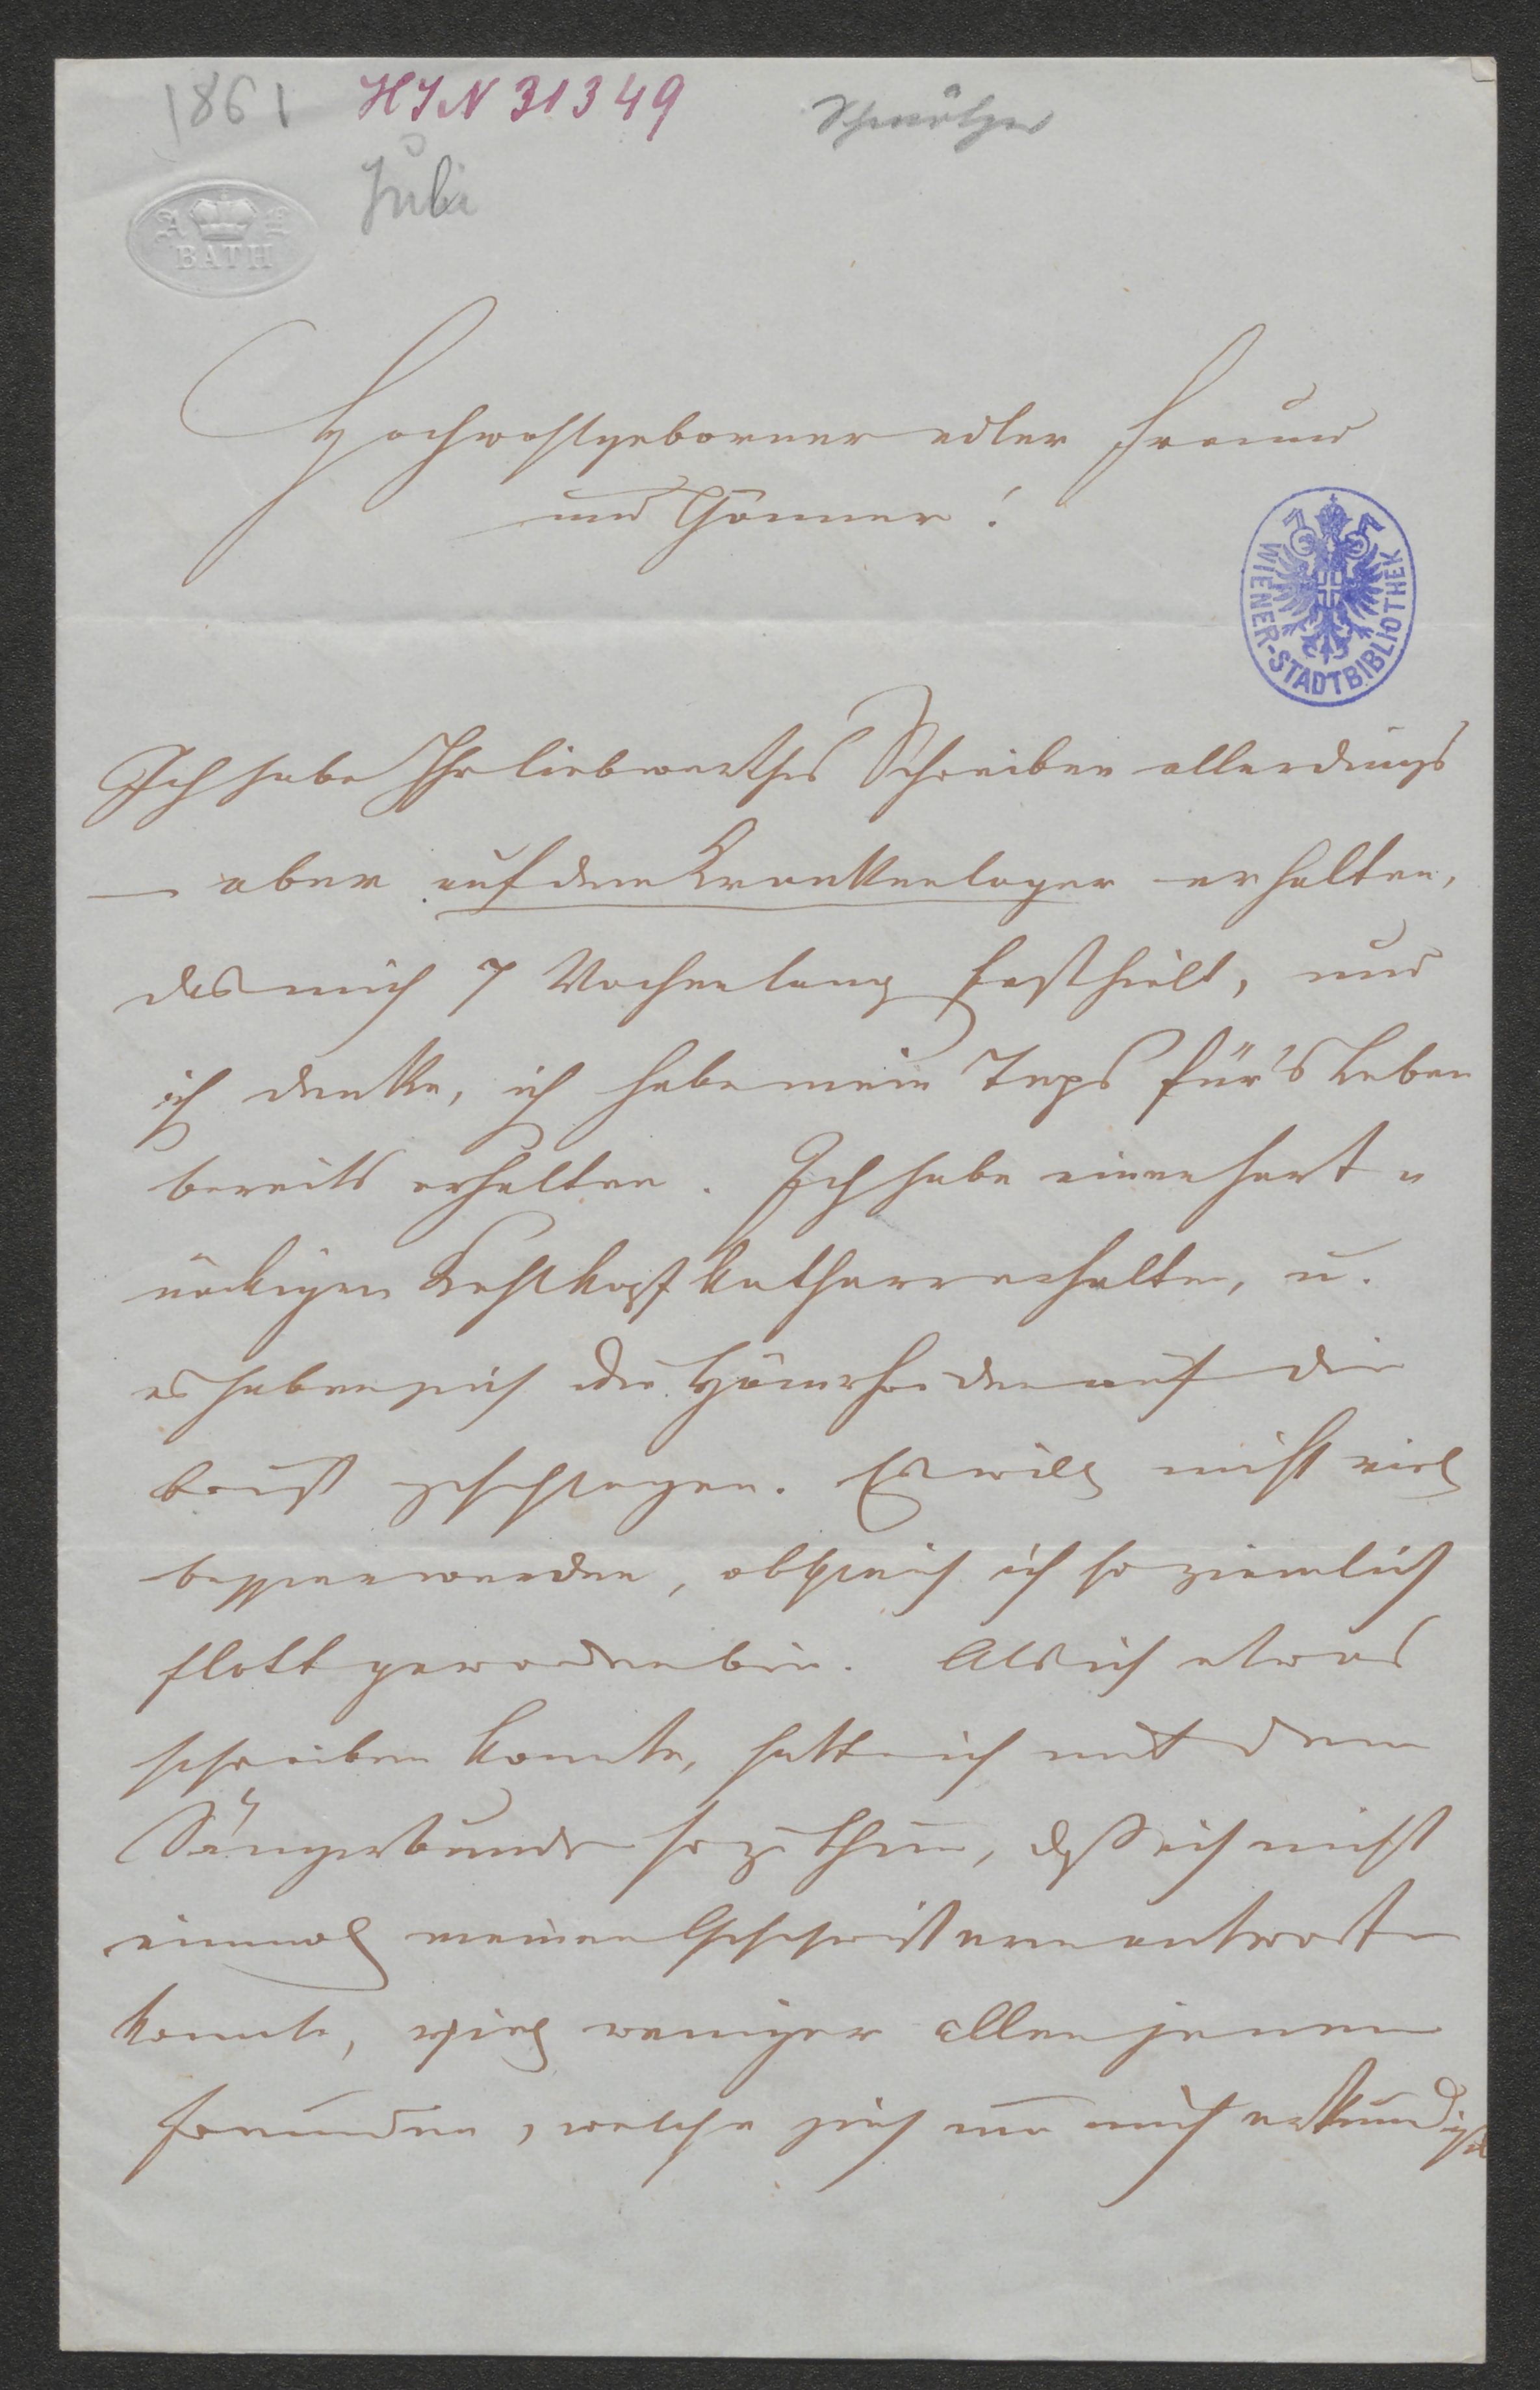 1861 HIN 31349 Schmölzer
Juli
A E
BATH
Hochwohlgeborner edler Freund
und Gönner!
WIENER-STADTBIBLIOTHEK
Ich habe Ihr liebwerthes Schreiben allerdings
– aber auf dem Krankenlager erhalten,
das mich 7 Wochen lang festhielt, und
ich denke, ich habe mein Taps für's Leben
bereits erhalten. Ich habe einen hart-
näckigen Kehlkopf Katharr erhalten, u.
es haben sich die Hämorhoiden auf die
Brust geschlagen. Es will nicht viel
besser werden, obgleich ich so ziemlich
flott geworden bin. Als ich etwas
schreiben konnte, hatte ich mit dem
Sängerbunde so zu thun, daß ich nicht
einmal meinen Geschwistern antworten
konnte, viel weniger allen jenen
Freunden, welche sich um mich erkundigt